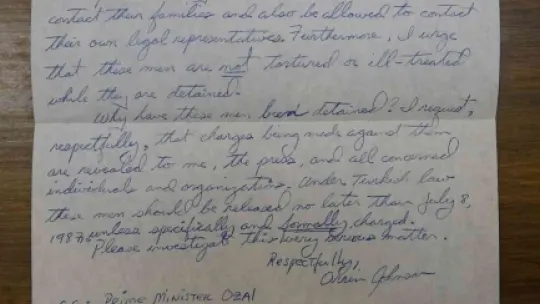 contact their families and also be allowed to contact
their own legal representatives. Furthermore, I urge
that these men are not tortured or ill-treated
while they are detained.
Why have these men been detained? I request,
respectfully, that charges being made against them
are revealed to me, the press, and all concerned
individuals and organizations. Under Turkish law
these men should be released no later than July 8,
1987, unless specifically and formally charged.
Please investigate this very serious matter.
Respectfully,
Johnson
cc: Prime Minister Ozal